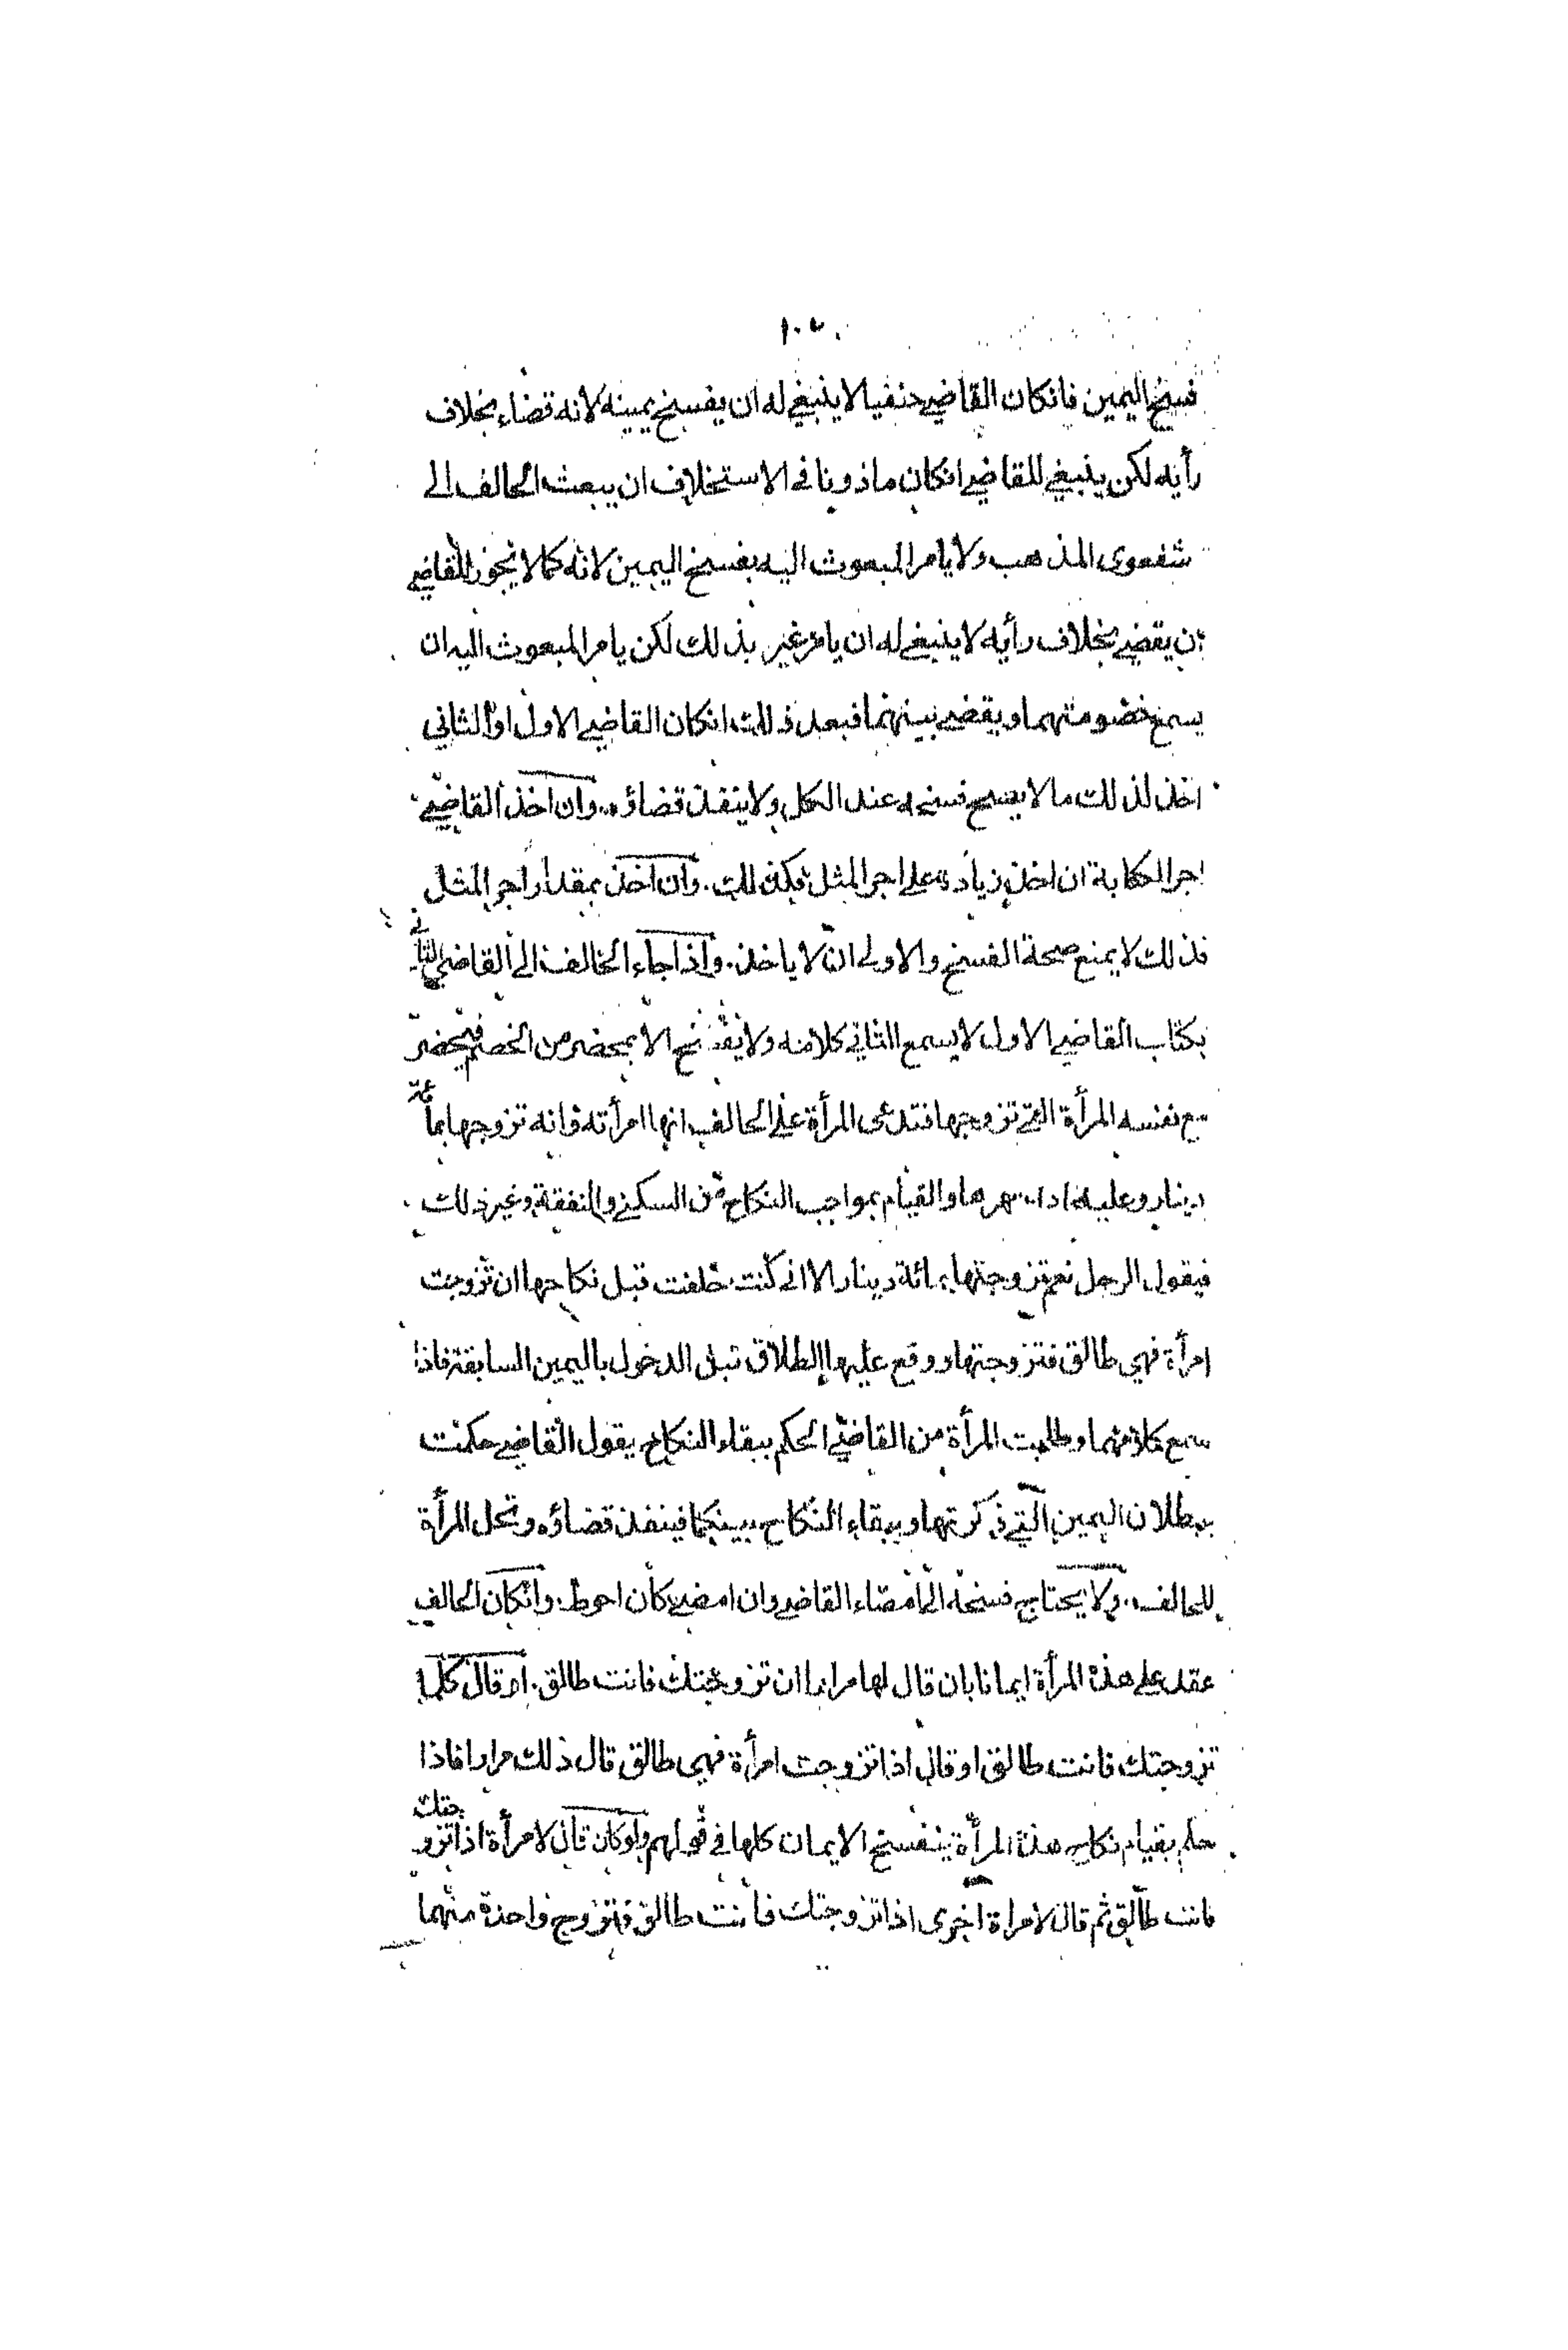 فسخ اليمين فانكان القاضي حنفيا لا ينبغي له ان يفسخ يمينه لانه قضاء بخلاف
رأيه لكن ينبغي للقاضي انكان ماذونا في الاستخلاف ان يبعث الحالف الى
شفعوى المذهب ولا يامر المبعوث اليه بفسخ اليمين لانه كما لا يجوز للقاضي
ان يقضي بخلاف رأيه لا ينبغي له ان يامر غير بذلك لكن يامر المبعوث اليه ان
يسمع خصومتهما ويقضي بينهما فبعد ذلك انكان القاضي الاول او الثاني
اخذ لذلك ما لا يصح فسخه عند الكل ولا ينفذ قضاؤه. وان اخذ القاضي
اجر الكتابة ان اخذ زيادة على اجر المثل فكذلك. وان اخذ بمقدار اجر المثل
فذلك لا يمنع صحة الفسخ والاولى ان لا ياخذ. واذا جاء الحالف الى القاضي الثاني
بكتاب القاضي الاول لا يسمع الثاني كلامه ولا يفسخ الا بمحضر من الخصم فيحضر
مع نفسه المرأة التي تزوجها فتدعى المرأة على الحالف انها امرأته وانه تزوجها بمائة
دينار وعليه اداء مهرها والقيام بمواجب النكاح من السكنى والنفقة وغير ذلك
فيقول الرجل نعم تزوجتها بمائة دينار الا انى كنت حلفت قبل نكاحها ان تزوجت
امرأة فهي طالق فتزوجتها ووقع عليها الطلاق قبل الدخول باليمين السابقة فاذا
سمع كلامهما وطلبت المرأة من القاضي الحكم ببقاء النكاح يقول القاضي حكمت
ببطلان اليمين التي ذكرتها وببقاء النكاح بينكما فينفذ قضاؤه وتحل المرأة
للحالف. ولا يحتاج فسخه الى امضاء القاضي وان امضى كان احوط. وانكان الحالف
عقد على هذه المرأة ايمانا بان قال لها مرارا ان تزوجتك فانت طالق. او قال كلما
تزوجتك فانت طالق او قال اذا تزوجت امرأة فهي طالق قال ذلك مرارا فاذا
حكم بقيام نكاح هذه المرأة ينفسخ الايمان كلها في قولهم ولو كان قال لامرأة اذا تزوجتك
فانت طالق ثم قال لامراة اخرى اذا تزوجتك فانت طالق فتزوج واحدة منهما